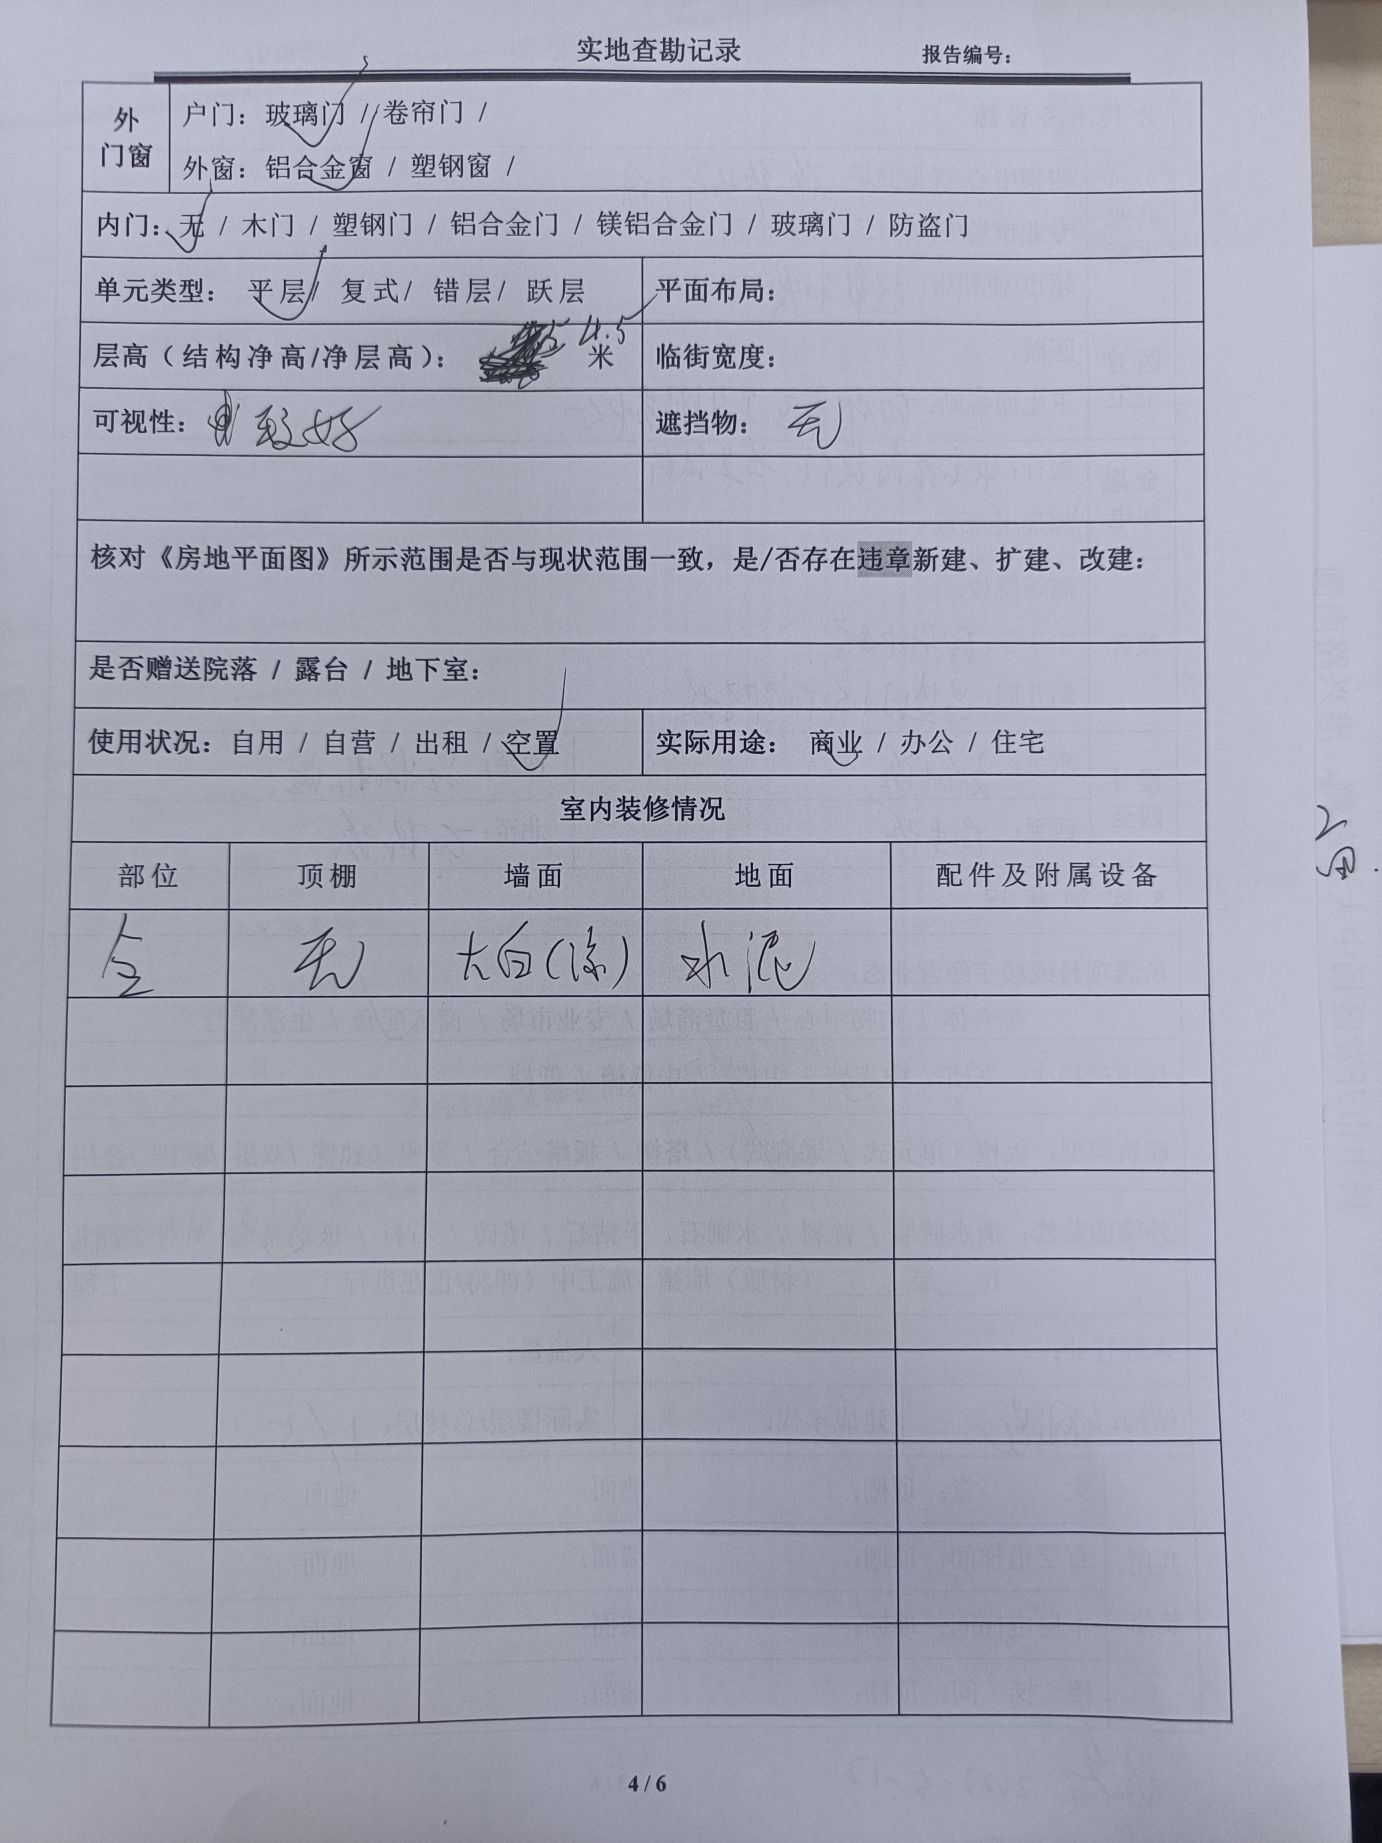 实地查勘记录 报告编号：
外门窗
户门：玻璃门 / 卷帘门 /
外窗：铝合金窗 / 塑钢窗 /
内门：无 / 木门 / 塑钢门 / 铝合金门 / 镁铝合金门 / 玻璃门 / 防盗门
单元类型： 平层/ 复式/ 错层/ 跃层 平面布局：
层高（结构净高/净层高）： 4.5 米 临街宽度：
可视性： 较好 遮挡物： 无
核对《房地平面图》所示范围是否与现状范围一致，是/否存在违章新建、扩建、改建：
是否赠送院落 / 露台 / 地下室：
使用状况：自用 / 自营 / 出租 / 空置 实际用途： 商业 / 办公 / 住宅
室内装修情况
部位 顶棚 墙面 地面 配件及附属设备
全 无 大白(涂) 水泥
4 / 6